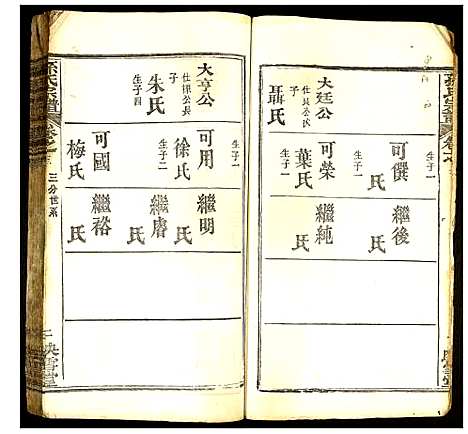 孫氏宗譜
大廷公
聶氏
生子二
可僎
生子一
可榮
葉氏
生子一
繼後
氏
繼純
氏
大亨公
仕擇公長子
朱氏
生子四
可用
徐氏
生子二
可國
梅氏
繼明
氏
繼膚
氏
繼裕
氏
孫氏宗譜
三分世系
映雪堂